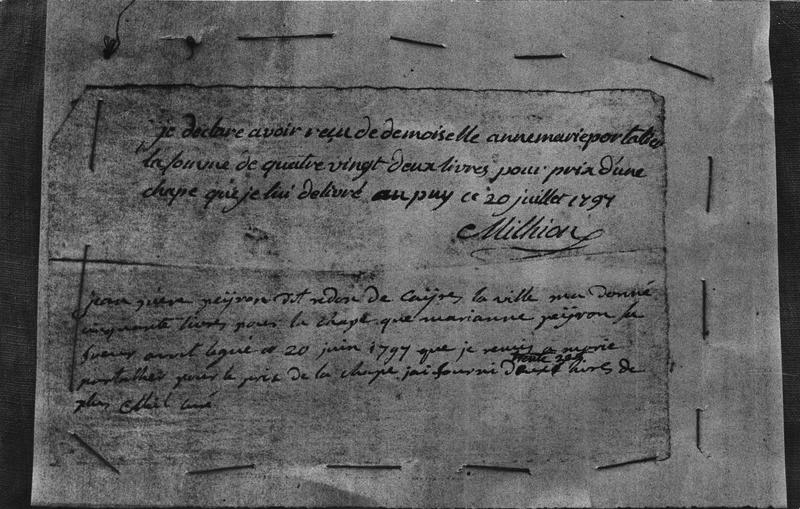 je declare avoir reçu de demoiselle anne marie portalier
la somme de quatre vingt deux livres pour prix d'une
chape que je lui delivré au puy ce 20 juillet 1797
Milhion
jean piere peÿron dit redon de Caÿres la ville ma donné
cinquante livres pour la chape que marianne peÿron sa
sueur avoit legué et 20 juin 1797 que je remis a marie
portallier pour le prix de la chape jai fourni trente deux livres de
plus